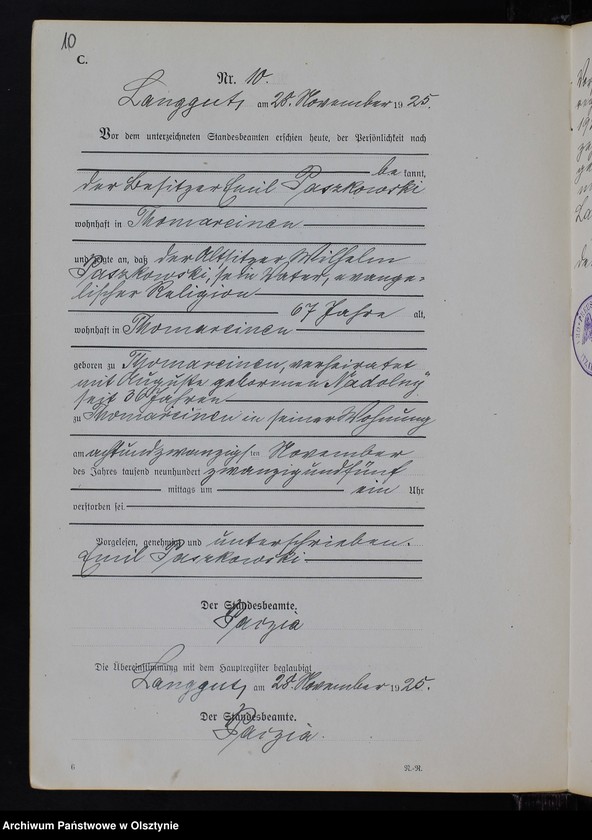 10
C.
Nr. 10.
Langgut, am 28. November 1925.
Vor dem unterzeichneten Standesbeamten erschien heute, der Persönlichkeit nach
be kannt,
der Besitzer Emil Paszkowski
wohnhaft in Thomareinen
und zeigte an, daß der Altsitzer Wilhelm
Paszkowski, sein Vater, evange-
lischer Religion
67 Jahre alt,
wohnhaft in Thomareinen
geboren zu Thomareinen, verheiratet
mit Auguste geborenen Nadolny
seit 36 Jahren
zu Thomareinen in seiner Wohnung
am achtundzwanzigsten November
des Jahres tausend neunhundert zwanzigundfünf
mittags um ein Uhr
verstorben sei.
Vorgelesen, genehmigt und unterschrieben.
Emil Paszkowski
Der Standesbeamte.
Die Übereinstimmung mit dem Hauptregister beglaubigt
Langgut, am 28. November 1925.
Der Standesbeamte.
6
N.-R.
Archiwum Państwowe w Olsztynie